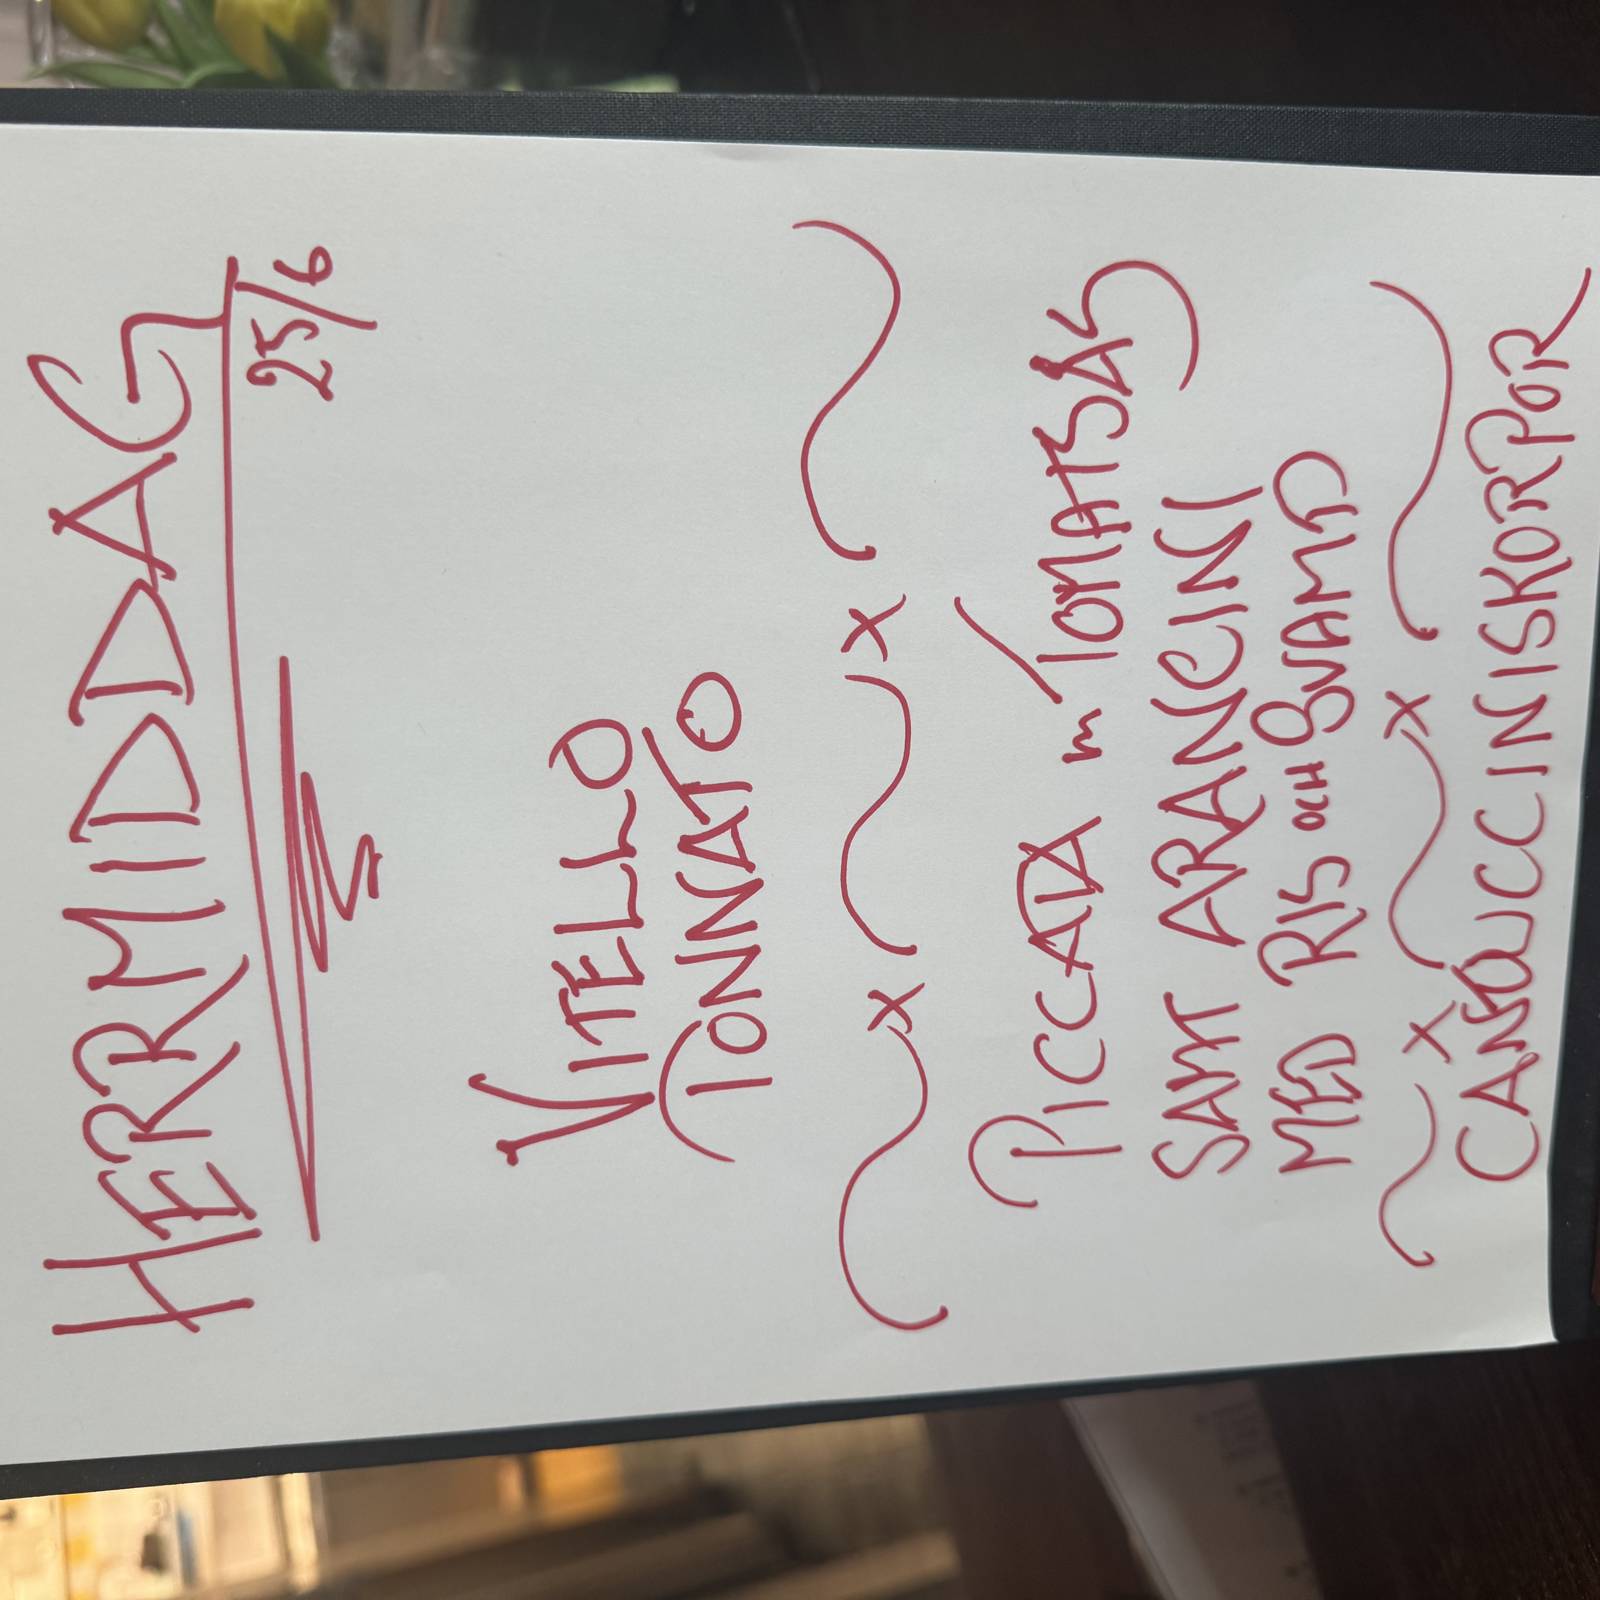 HERRMIDDAG
25/6
VITELLO
TONNATO
PICCATA m TOMATSÅS
SAMT ARANCINI
MED RIS OCH SVAMP
CANTUCCINISKORPOR